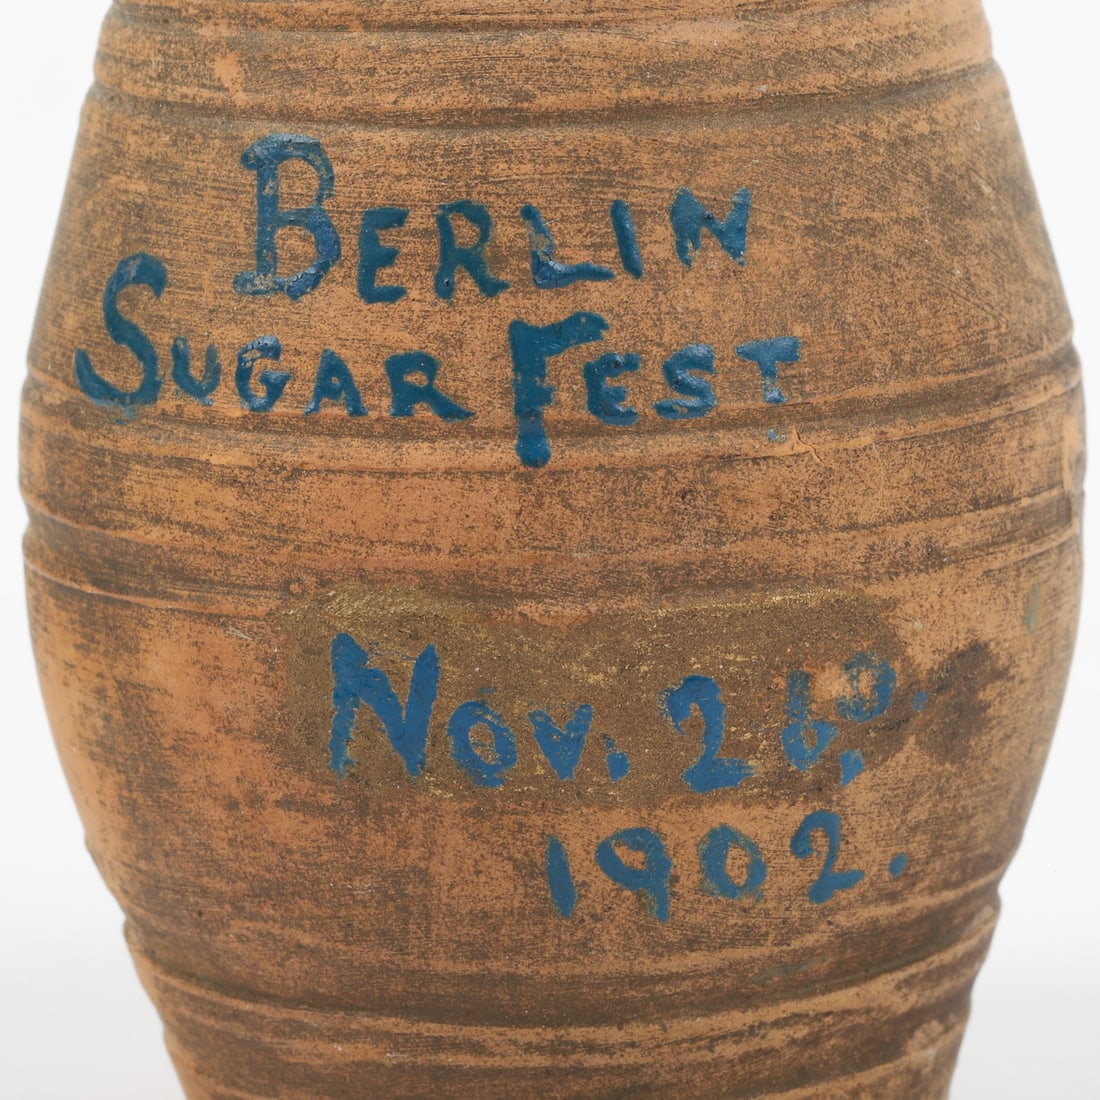 BERLIN
SUGAR FEST
NOV. 26.
1902.